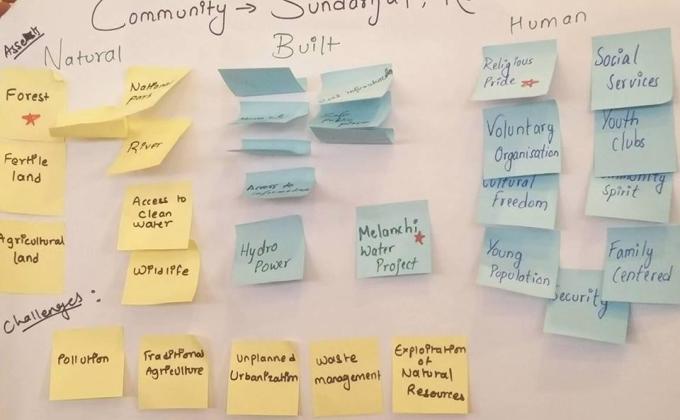 Community → Sundarijal,
Assets
Natural
Built
Human
Forest
Fertile
land
Agricultural
land
National
Park
River
Access to
Clean
water
Wildlife
Access to
Hydro
Power
Melanchi
Water
Project
Religious
Pride
Social
Services
Voluntary
Organisation
Youth
Clubs
Cultural
Freedom
Community
Spirit
Young
Population
Family
Centered
Security
Challenges:
Pollution
Traditional
Agriculture
Unplanned
Urbanization
Waste
management
Exploitation
of
Natural
Resources